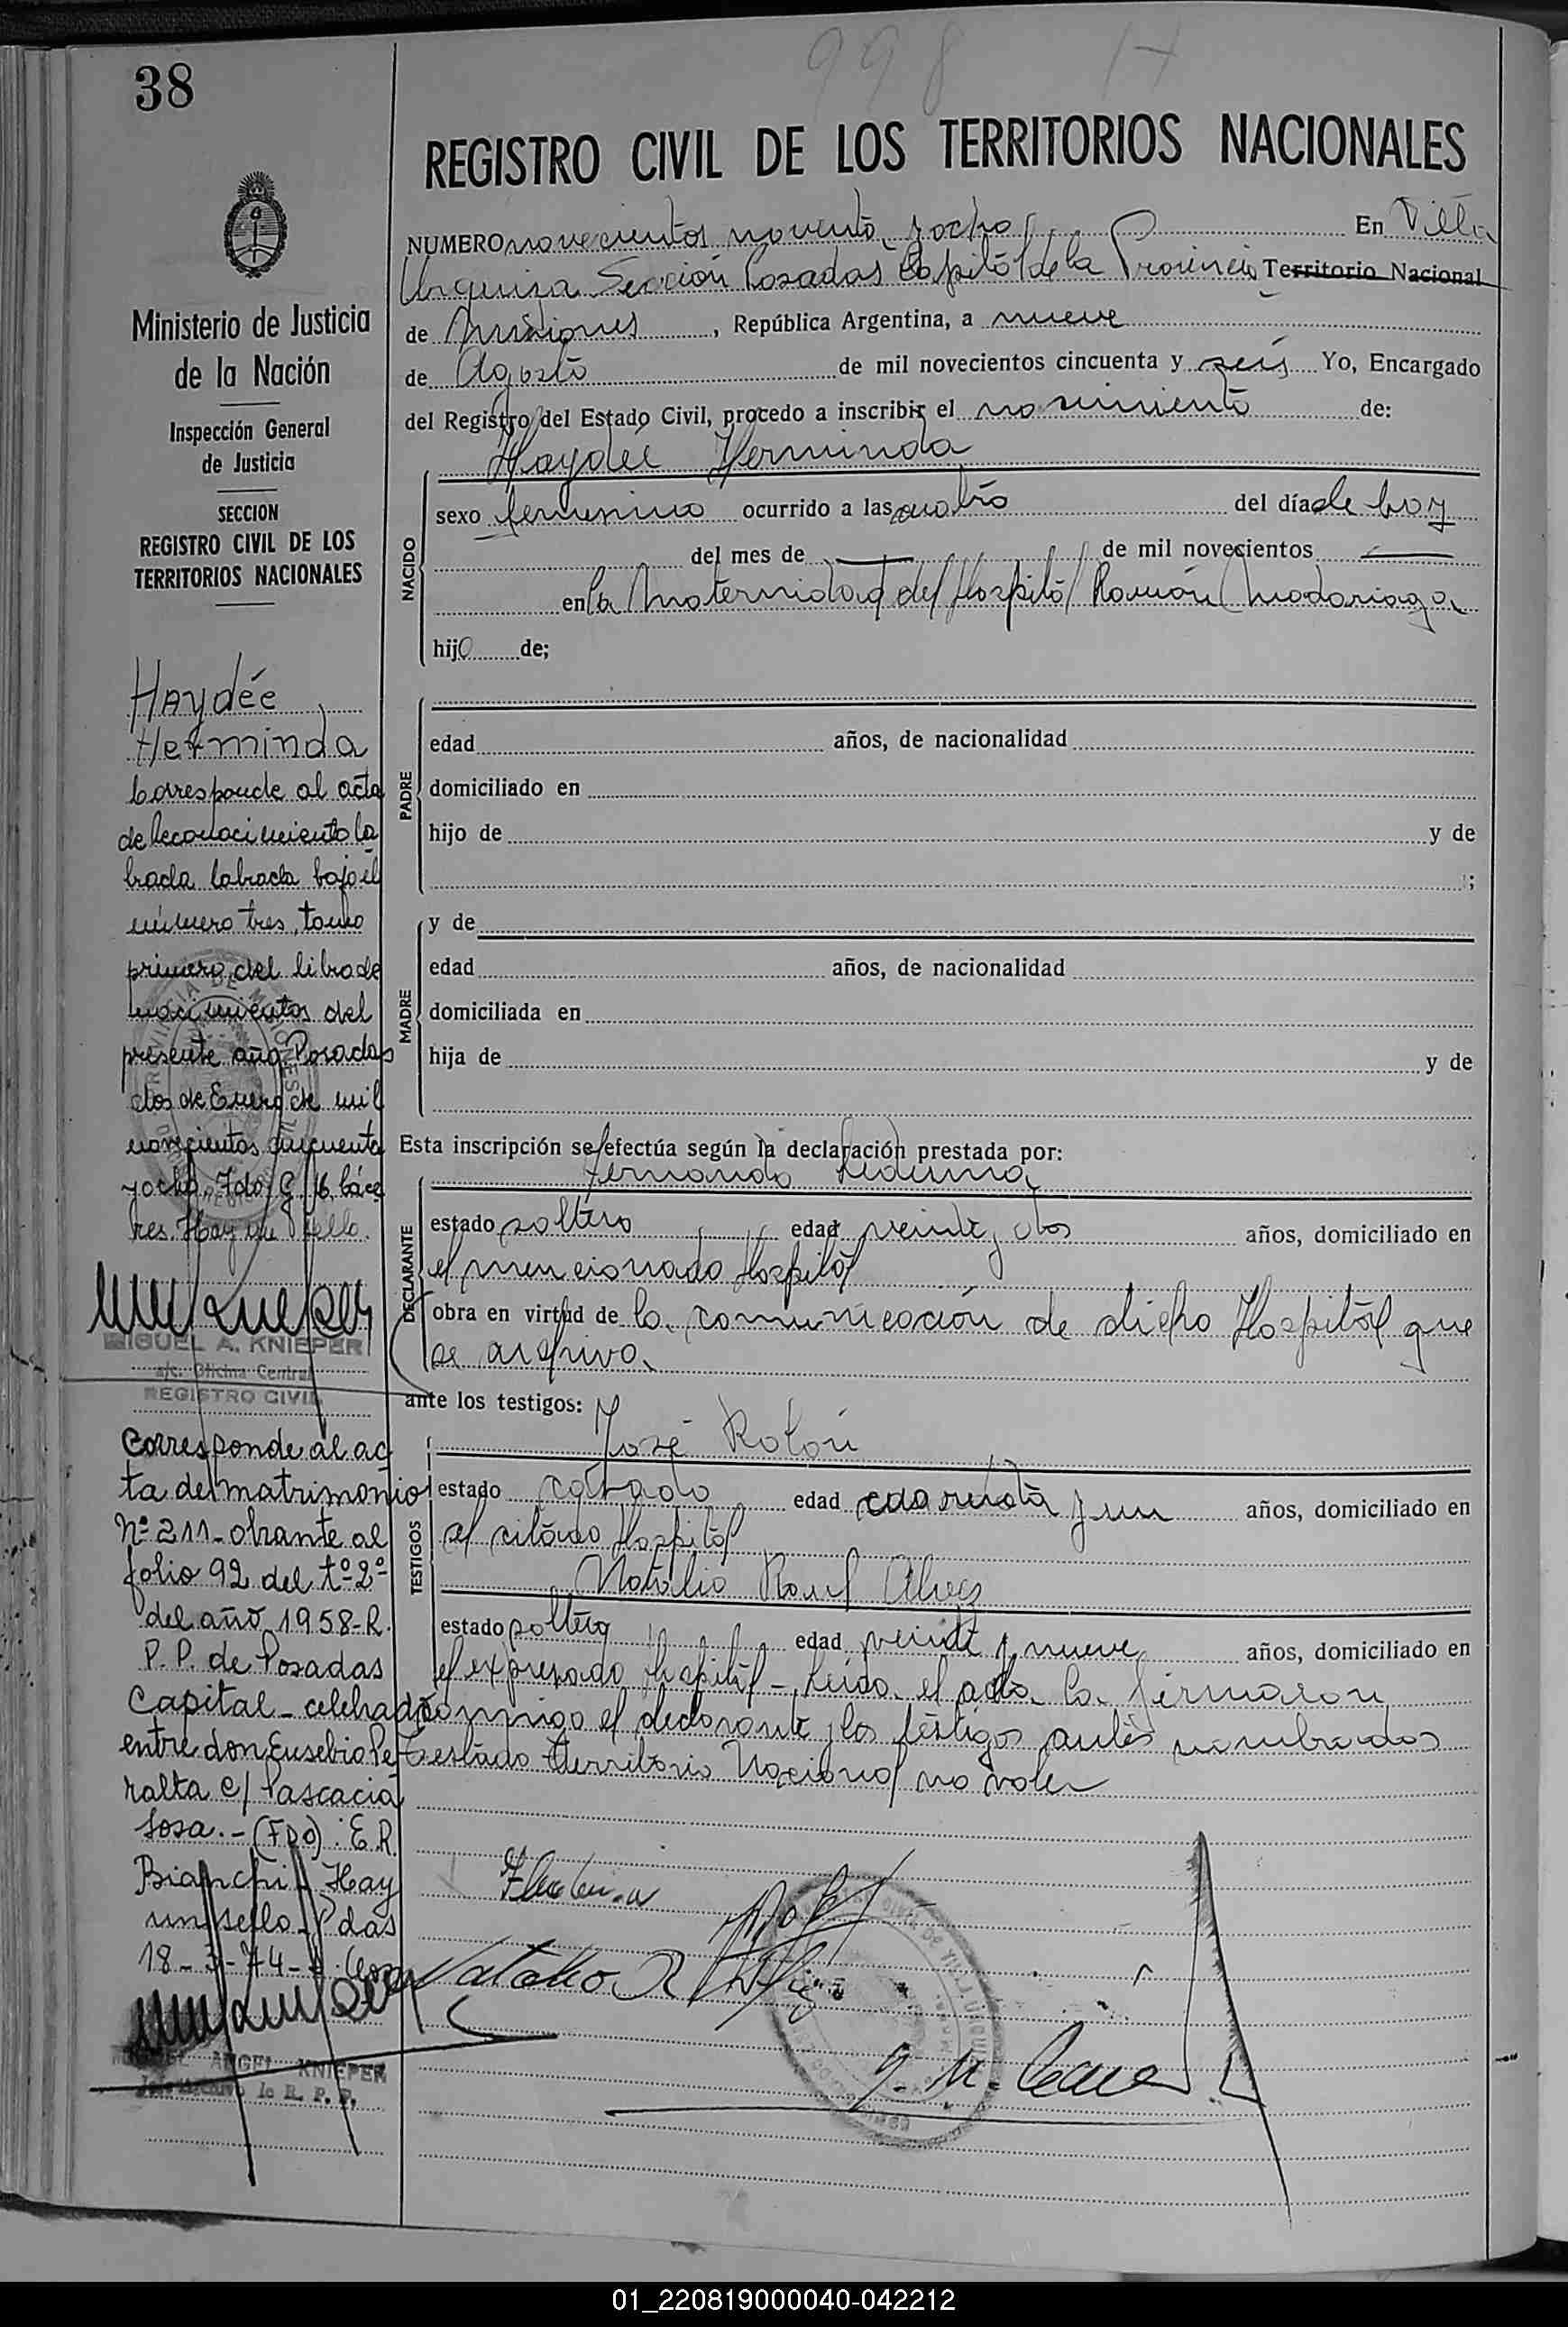 998 H
38
REGISTRO CIVIL DE LOS TERRITORIOS NACIONALES
NUMERO novecientos noventa y ocho En Villa
Urquiza Sección Posadas Capital de la Provincia Territorio Nacional
de Misiones, República Argentina, a nueve
de Agosto de mil novecientos cincuenta y seis Yo, Encargado
del Registro del Estado Civil, procedo a inscribir el nacimiento de:
Haydée Herminda
NACIDO
sexo femenino ocurrido a las cuatro del día de hoy
del mes de — de mil novecientos —
en la Maternidad del Hospital Ramón Madariaga
hija de;
PADRE
edad años, de nacionalidad
domiciliado en
hijo de y de
;
MADRE
y de
edad años, de nacionalidad
domiciliada en
hija de y de
Esta inscripción se efectúa según la declaración prestada por:
Fernando Ledesma
DECLARANTE
estado soltero edad veinte y dos años, domiciliado en
el mencionado Hospital
obra en virtud de la comunicación de dicho Hospital que
se archiva
ante los testigos:
José Rolón
TESTIGOS
estado casado edad cuarenta y un años, domiciliado en
el citado Hospital
Natalio Raul Alvez
estado soltero edad veinte y nueve años, domiciliado en
el expresado Hospital - Leida el acta la firmaron
conmigo el declarante y los testigos antes nombrados
Testado Territorio Nacional no vale
Natalio R
Ministerio de Justicia
de la Nación
Inspección General
de Justicia
SECCION
REGISTRO CIVIL DE LOS
TERRITORIOS NACIONALES
Haydée
Herminda
Corresponde al acta
de Reconocimiento la
brada labrada bajo el
número tres, tomo
primero del libro de
nacimientos del
presente año Posadas
dos de Enero de mil
novecientos cincuenta
y ocho. Fdo. G. M. Cáce
res. Hay un sello.
MIGUEL A. KNIEPER
a/c. Oficina Central
REGISTRO CIVIL
Corresponde al ac
ta de matrimonio
Nº 211 - obrante al
folio 92 del tº 2º
del año 1958-R.
P.P. de Posadas
Capital - celebrado
entre don Eusebio Pe
ralta c/ Pascacia
Sosa.- (FDO): E.R.
Bianchi - Hay
un sello - Pdas
18-3-74-
MIGUEL ANGEL KNIEPER
Jefe Archivo de R. P. P.
01_220819000040-042212